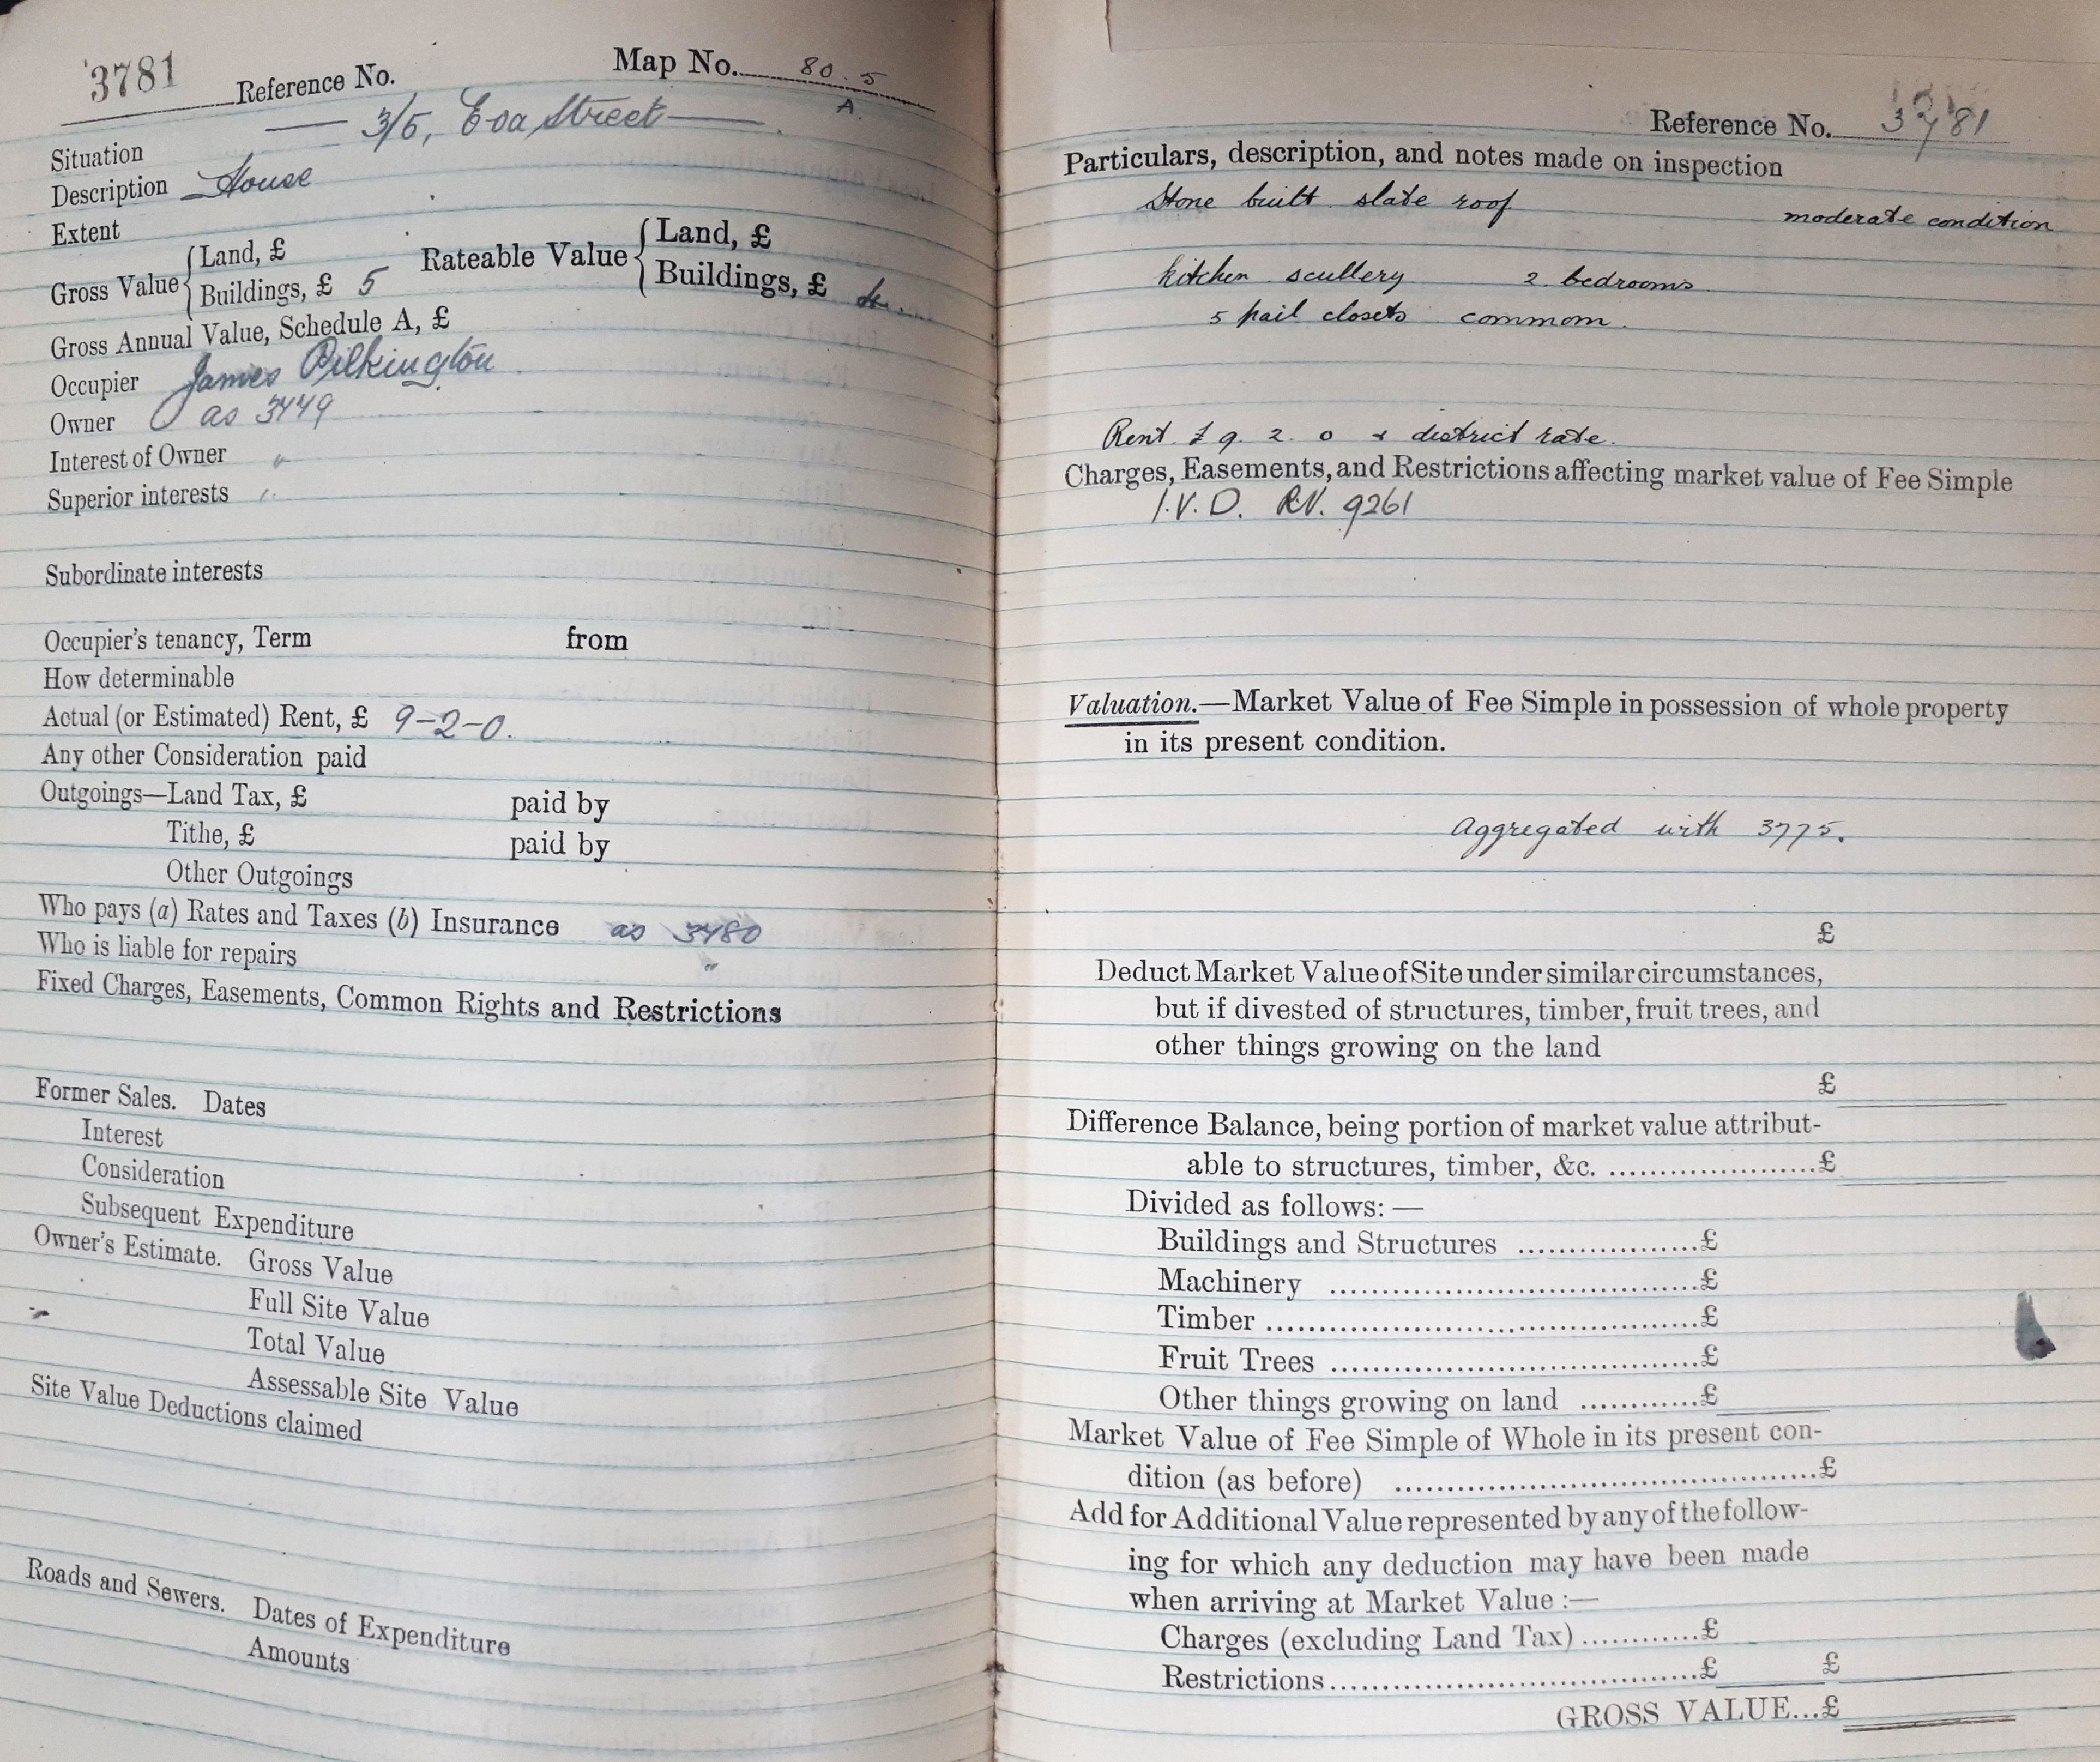 3781 Reference No. Map No. 80.5
A.
3/5, Eva Street
Situation
Description House
Extent
Gross Value { Land, £
Buildings, £ 5
Rateable Value { Land, £
Buildings, £
Gross Annual Value, Schedule A, £
Occupier James Pilkington
Owner as 3449
Interest of Owner "
Superior interests "
Subordinate interests
Occupier's tenancy, Term from
How determinable
Actual (or Estimated) Rent, £ 9-2-0.
Any other Consideration paid
Outgoings—Land Tax, £ paid by
Tithe, £ paid by
Other Outgoings
Who pays (a) Rates and Taxes (b) Insurance as 3480
Who is liable for repairs "
Fixed Charges, Easements, Common Rights and Restrictions
Former Sales. Dates
Interest
Consideration
Subsequent Expenditure
Owner's Estimate. Gross Value
Full Site Value
Total Value
Assessable Site Value
Site Value Deductions claimed
Roads and Sewers. Dates of Expenditure
Amounts
Reference No. 3781
Particulars, description, and notes made on inspection
Stone built slate roof moderate condition
kitchen scullery 2 bedrooms
5 pail closets common.
Rent £9. 2. 0 + district rate.
Charges, Easements, and Restrictions affecting market value of Fee Simple
I.V.D. R.V. 9261
Valuation.—Market Value of Fee Simple in possession of whole property
in its present condition.
Aggregated with 3775.
£
Deduct Market Value of Site under similar circumstances,
but if divested of structures, timber, fruit trees, and
other things growing on the land
£
Difference Balance, being portion of market value attribut-
able to structures, timber, &c. ....................£
Divided as follows:—
Buildings and Structures ..................£
Machinery ....................................£
Timber ..........................................£
Fruit Trees ....................................£
Other things growing on land ............£
Market Value of Fee Simple of Whole in its present con-
dition (as before) ..........................................£
Add for Additional Value represented by any of the follow-
ing for which any deduction may have been made
when arriving at Market Value :—
Charges (excluding Land Tax) ............£
Restrictions....................................£ £
GROSS VALUE...£